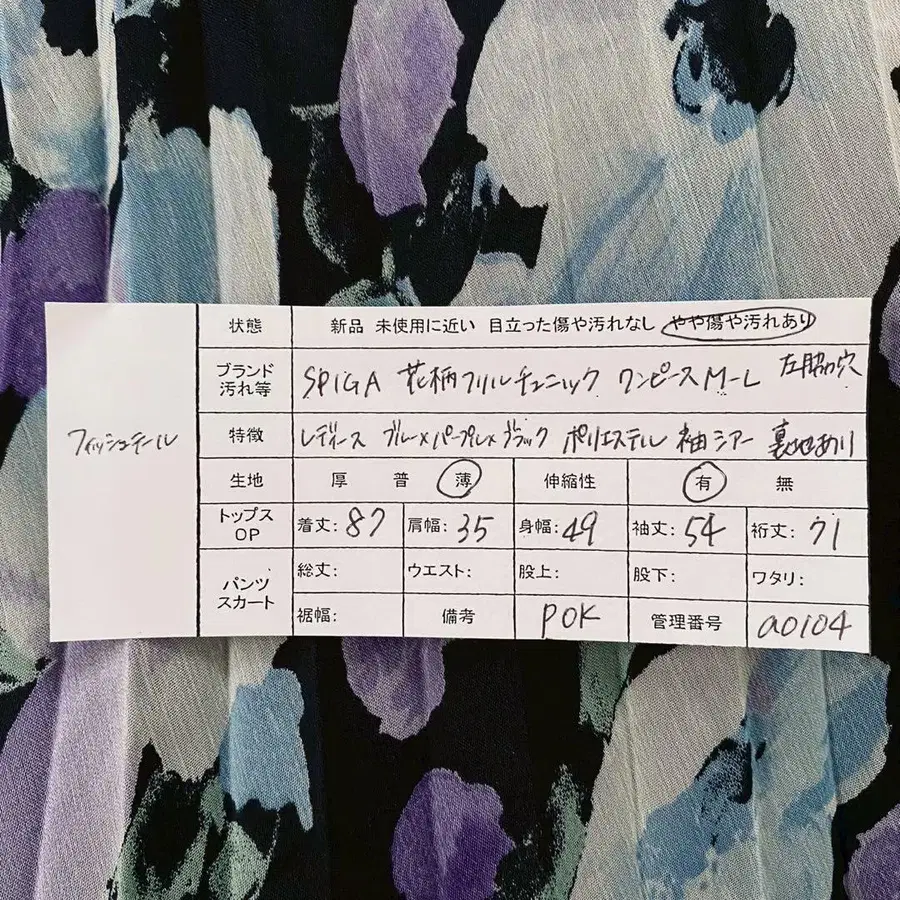 フィッシュテール
状態 新品 未使用に近い 目立った傷や汚れなし やや傷や汚れあり
ブランド 汚れ等 SPIGA 花柄フリルチュニック ワンピースM-L 左脇穴
特徴 レディース ブルー×パープル×ブラック ポリエステル 袖シアー 裏地あり
生地 厚 普 薄 伸縮性 有 無
トップス OP 着丈:87 肩幅:35 身幅:49 袖丈:54 裄丈:71
パンツ スカート 総丈: ウエスト: 股上: 股下: ワタリ:
裾幅: 備考 POK 管理番号 a0104